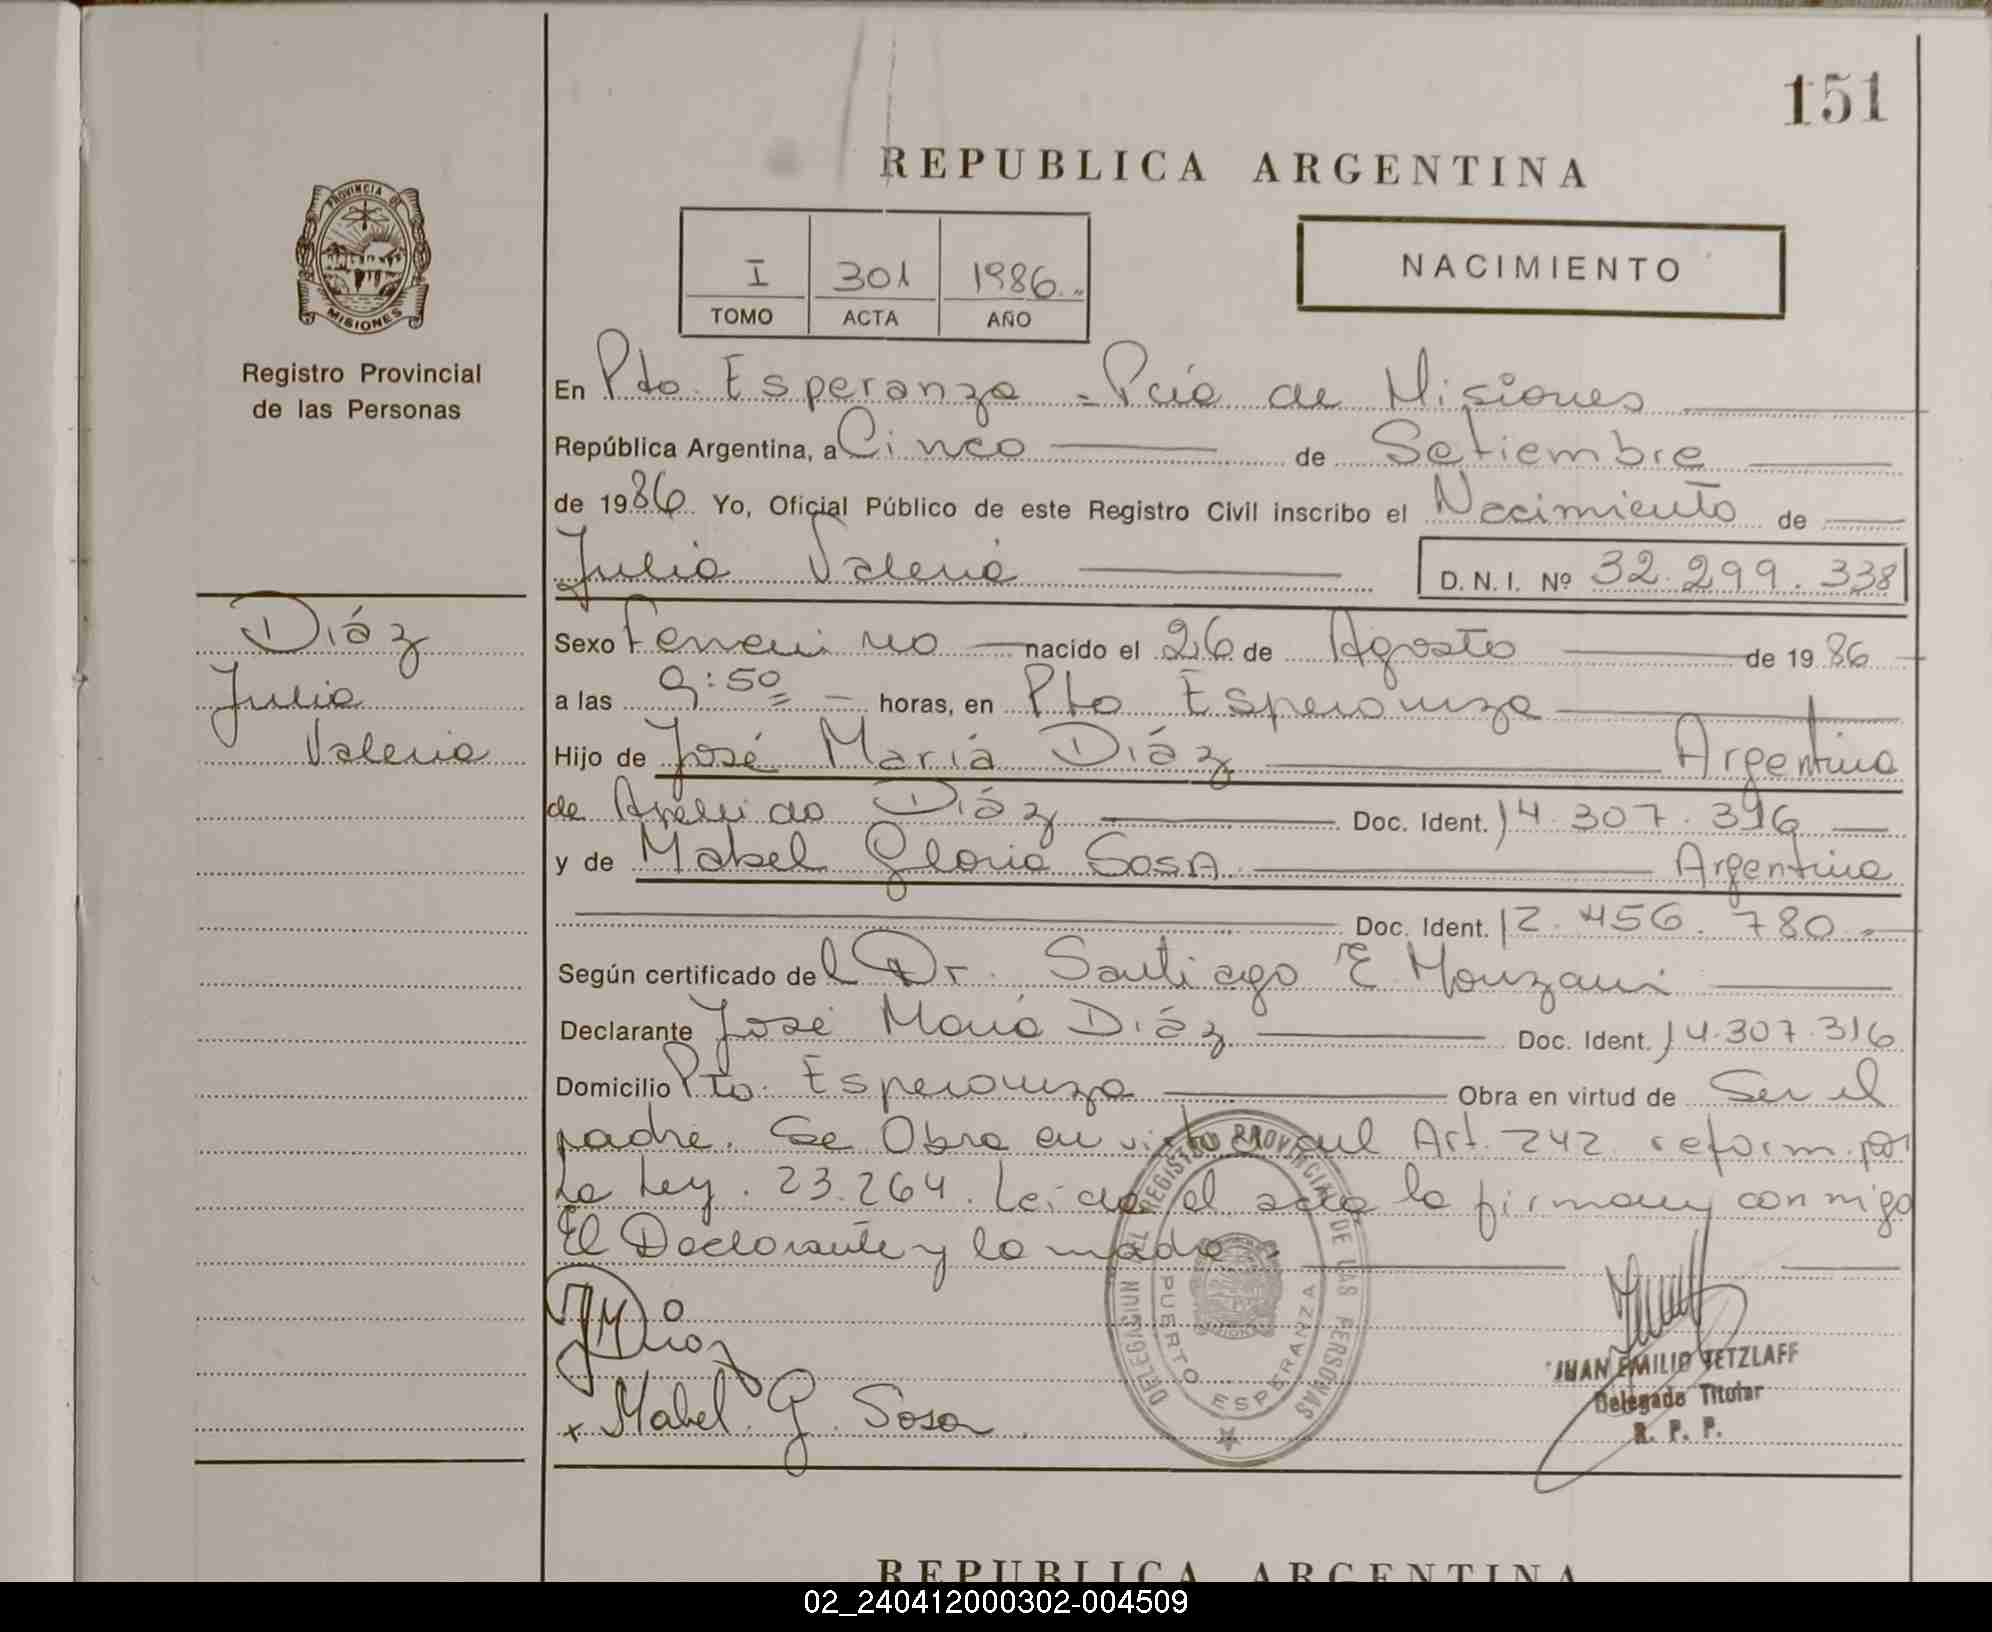 151
REPUBLICA ARGENTINA
PROVINCIA DE
MISIONES
Registro Provincial
de las Personas
I 301 1986
TOMO ACTA AÑO
NACIMIENTO
En Pto. Esperanza - Pcia de Misiones
República Argentina, a Cinco de Setiembre
de 1986 Yo, Oficial Público de este Registro Civil inscribo el Nacimiento de
Julia Valeria D. N. I. Nº 32.299.338
Díáz
Julia
Valeria
Sexo Femenino nacido el 26 de Agosto de 1986
a las 9:50 horas, en Pto Esperanza
Hijo de José María Díáz Argentino
de Apellido Díáz Doc. Ident. 14.307.316
y de Mabel Gloria Sosa Argentina
Doc. Ident. 12.456.780
Según certificado del Dr. Santiago E Monzani
Declarante José María Díáz Doc. Ident. 14.307.316
Domicilio Pto. Esperanza Obra en virtud de Ser el
padre. Se Obra en virtud del Art. 242 reform. por
La Ley. 23.264. Leída el acta la firman conmigo
El Declarante y la madre
DELEGASIUN DEL REGISTRO PROVINCIAL DE LAS PERSONAS
PUERTO ESPERANZA
Díaz
x Mabel. G. Sosa
JUAN EMILIO TETZLAFF
Delegado Titular
R. P. P.
REPUBLICA ARGENTINA
02_240412000302-004509